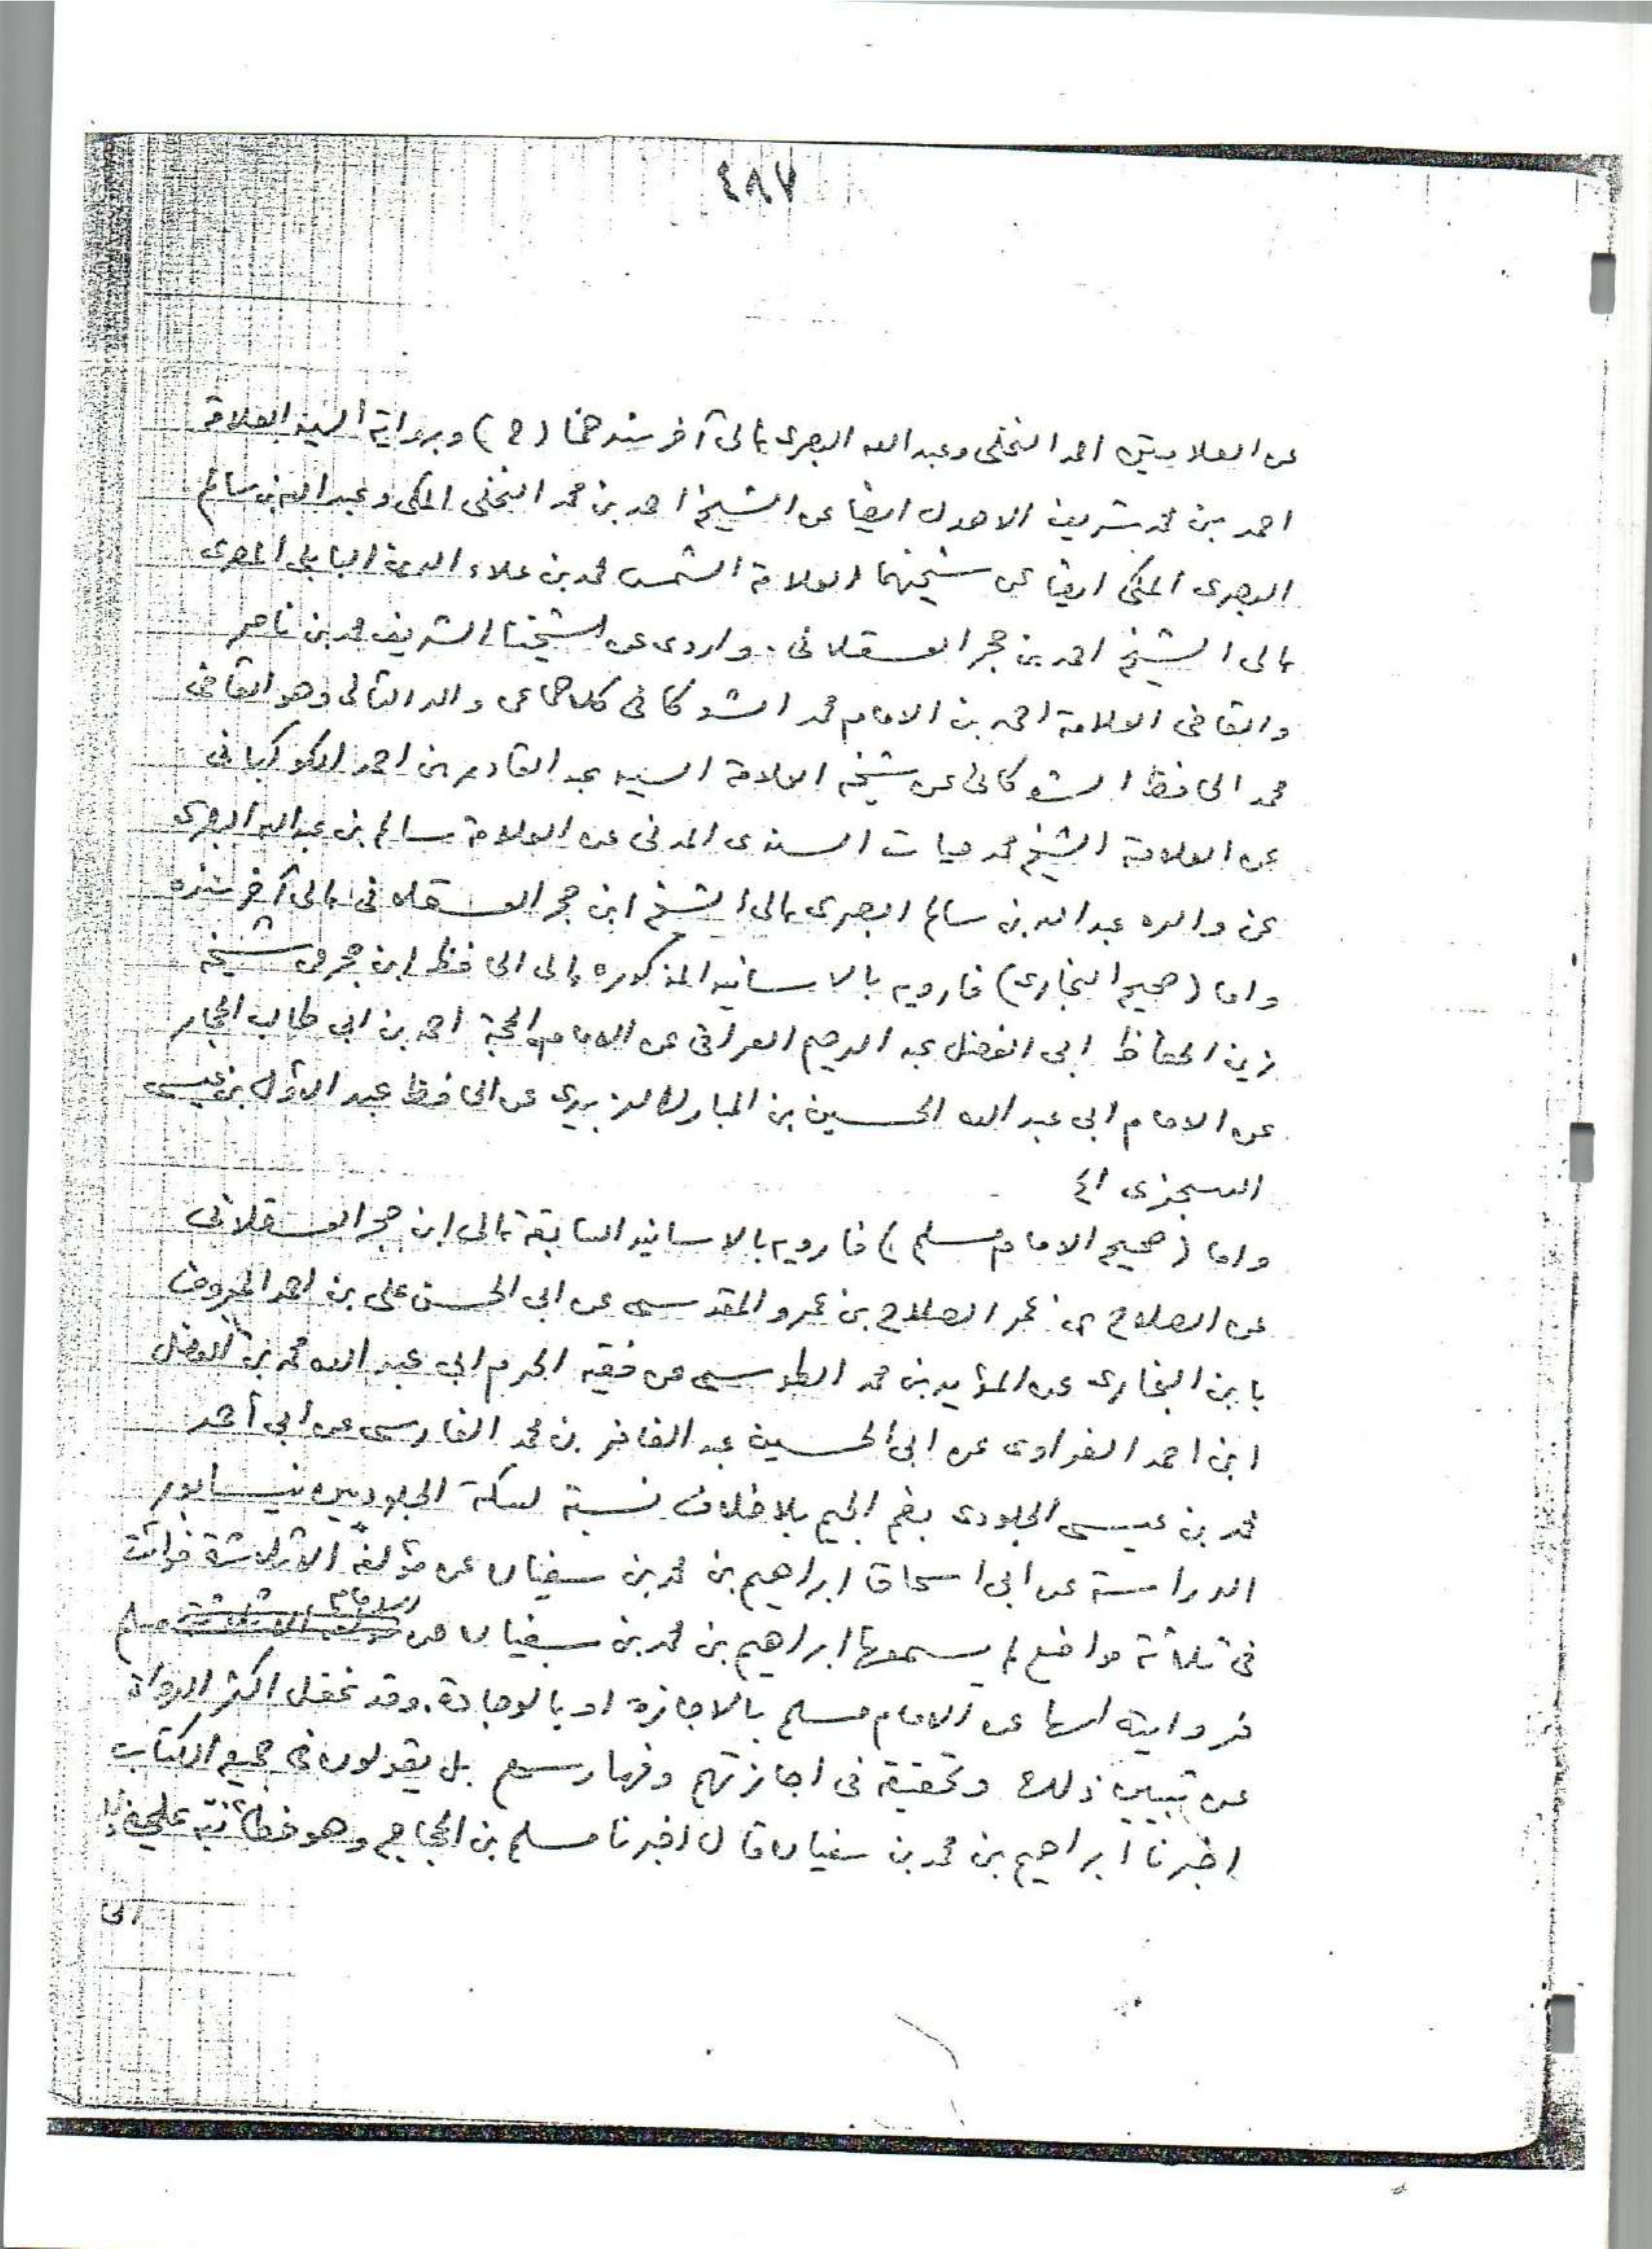 ٤٨٧
عن العلامتين احمد النخلى وعبد الله البصرى الى آخر سندهما (ح) وبرواية السيد العلامة
احمد بن محمد شريف الاهدل ايضا عن الشيخ احمد بن محمد النخلى المكى وعبد الله بن سالم
البصرى المكى ايضا عن شيخهما العلامة الشمس محمد بن علاء الدين البابلى المصرى
الى الشيخ احمد بن حجر العسقلانى. واروى عن شيخنا الشريف محمد بن ناصر
والقاضى العلامة احمد بن الامام محمد الشوكانى كلاهما عن والد الثانى وهو القاضى
محمد الحافظ الشوكانى عن شيخه العلامة السيد عبد القادر بن احمد الكوكبانى
عن العلامة الشيخ محمد حيات السندى المدنى عن العلامة سالم بن عبد الله البصرى
عن والده عبد الله بن سالم البصرى الى الشيخ ابن حجر العسقلانى الى آخر سنده
واما (صحيح البخارى) فارويه بالاسانيد المذكوره الى الحافظ ابن حجر عن شيخه
زين الحفاظ ابى الفضل عبد الرحيم العراقى عن الامام الحجة احمد بن ابى طالب الحجار
عن الامام ابى عبد الله الحسين بن المبارك الزبيدى عن الحافظ عبد الاول بن عيسى
السجزى اه
واما (صحيح الامام مسلم) فارويه بالاسانيد السابقة الى ابن حجر العسقلانى
عن الصلاح بن عمر الصلاح بن عمرو المقدسى عن ابى الحسن على بن احمد المعروف
بابن البخارى عن المؤيد بن محمد الطوسى عن فقيه الحرم ابى عبد الله محمد بن الفضل
ابن احمد الفراوى عن ابى الحسين عبد الغافر بن محمد الفارسى عن ابى أحمد
محمد بن عيسى الجلودى بضم الجيم بلا خلاف نسبة لسكة الجلوديين نيسابور
الدراسة عن ابى اسحاق ابراهيم بن محمد بن سفيان عن مؤلفه الا ثلاثة فوائت
فى ثلاثة مواضع لم يسمعها ابراهيم بن محمد بن سفيان من الامام مسلم
فروايته لها عن الامام مسلم بالاجازه او بالوجادة. وقد غفل اكثر الرواة
عن تبيين ذلك وتحقيقه فى اجازتهم وفهارسهم بل يقولون فى جميع الكتاب
اخبرنا ابراهيم بن محمد بن سفيان قال اخبرنا مسلم بن الحجاج وهو خطأ نبه عليه